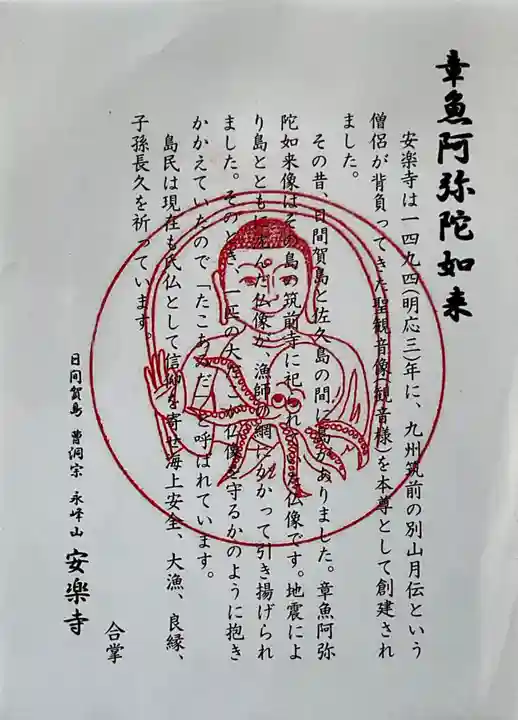 章魚阿弥陀如来
安楽寺は一四九四(明応三)年に、九州筑前の別山月伝という
僧侶が背負ってきた聖観音像(観音様)を本尊として創建され
ました。
その昔、日間賀島と佐久島の間に島がありました。章魚阿弥
陀如来像はその島の筑前寺に祀られていた仏像です。地震によ
り島とともに沈んだ仏像が、漁師の網にかかって引き揚げられ
ました。そのとき、一匹の大だこが仏像を守るかのように抱き
かかえていたので「たこあみだ」と呼ばれています。
島民は現在も氏仏として信仰を寄せ海上安全、大漁、良縁、
子孫長久を祈っています。
合掌
日间賀島 曹洞宗 永峰山 安楽寺